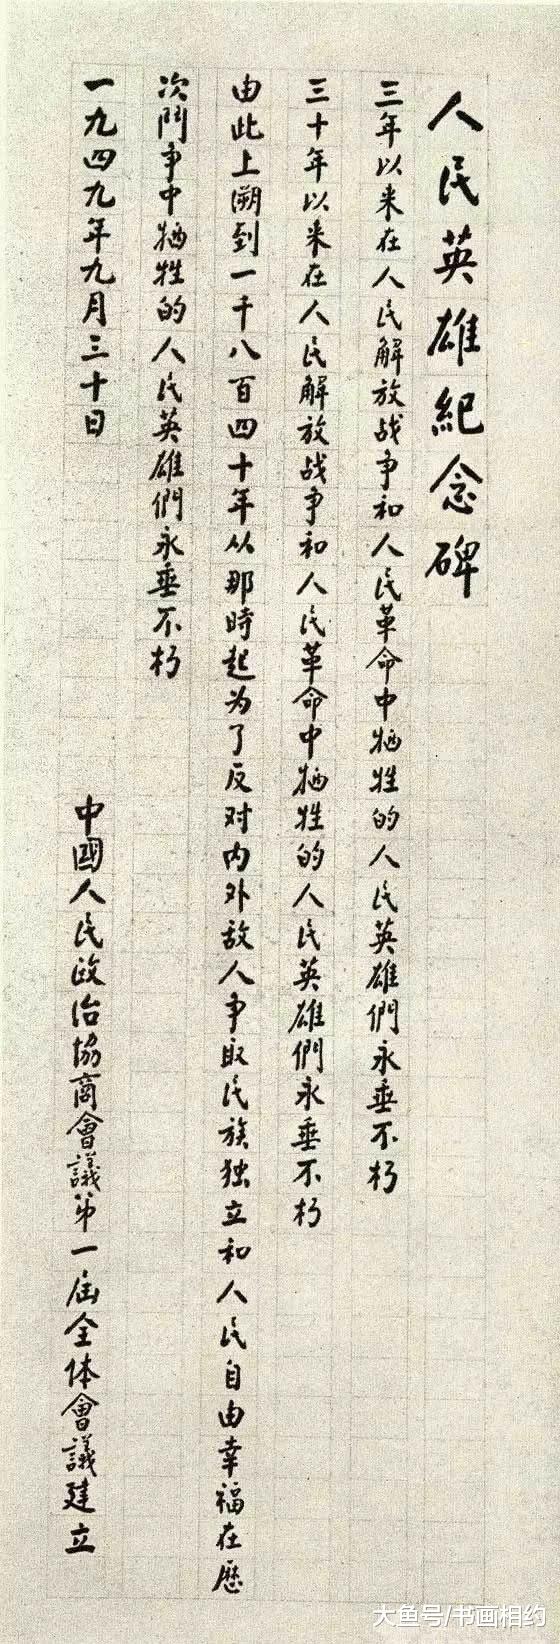 人民英雄紀念碑
三年以来在人民解放战争和人民革命中牺牲的人民英雄們永垂不朽
三十年以来在人民解放战争和人民革命中牺牲的人民英雄們永垂不朽
由此上溯到一千八百四十年从那時起为了反对内外敌人争取民族独立和人民自由幸福在歷
次鬥争中牺牲的人民英雄們永垂不朽
一九四九年九月三十日
中國人民政治協商會議第一届全体會議建立
大鱼号/书画相约